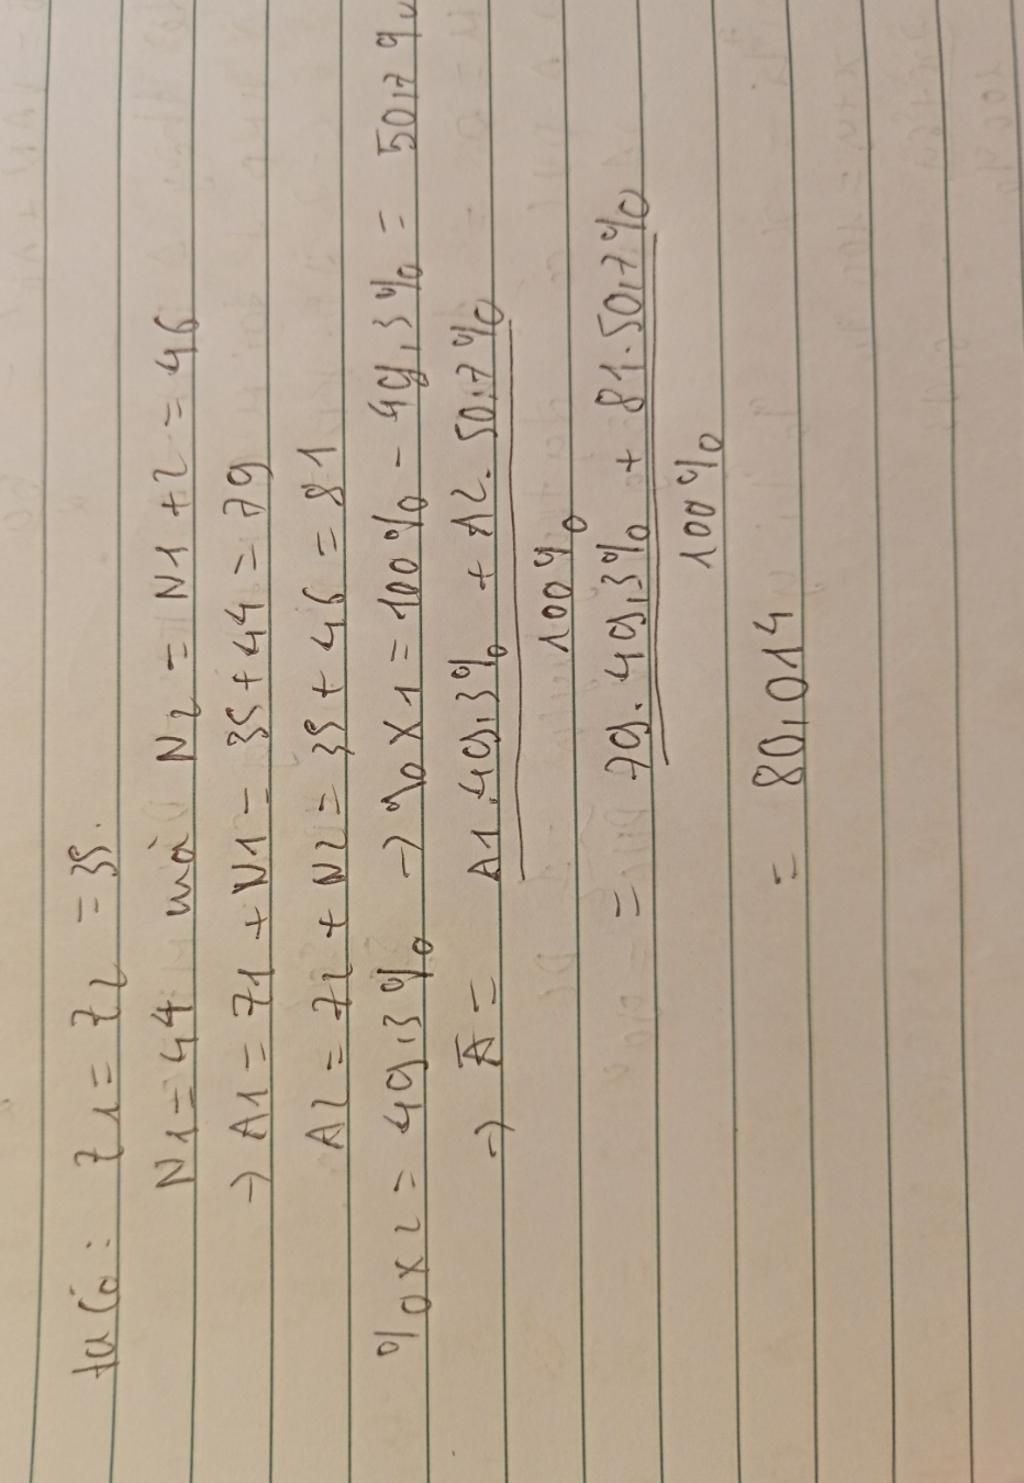 ta có: Z1 = Z2 = 35.
N1 = 44 mà N2 = N1 + 2 = 46
→ A1 = Z1 + N1 = 35 + 44 = 79
A2 = Z2 + N2 = 35 + 46 = 81
%X2 = 49,3% → %X1 = 100% - 49,3% = 50,7%
→ Ā = A1.49,3% + A2.50,7%
100%
= 79.49,3% + 81.50,7%
100%
= 80,014